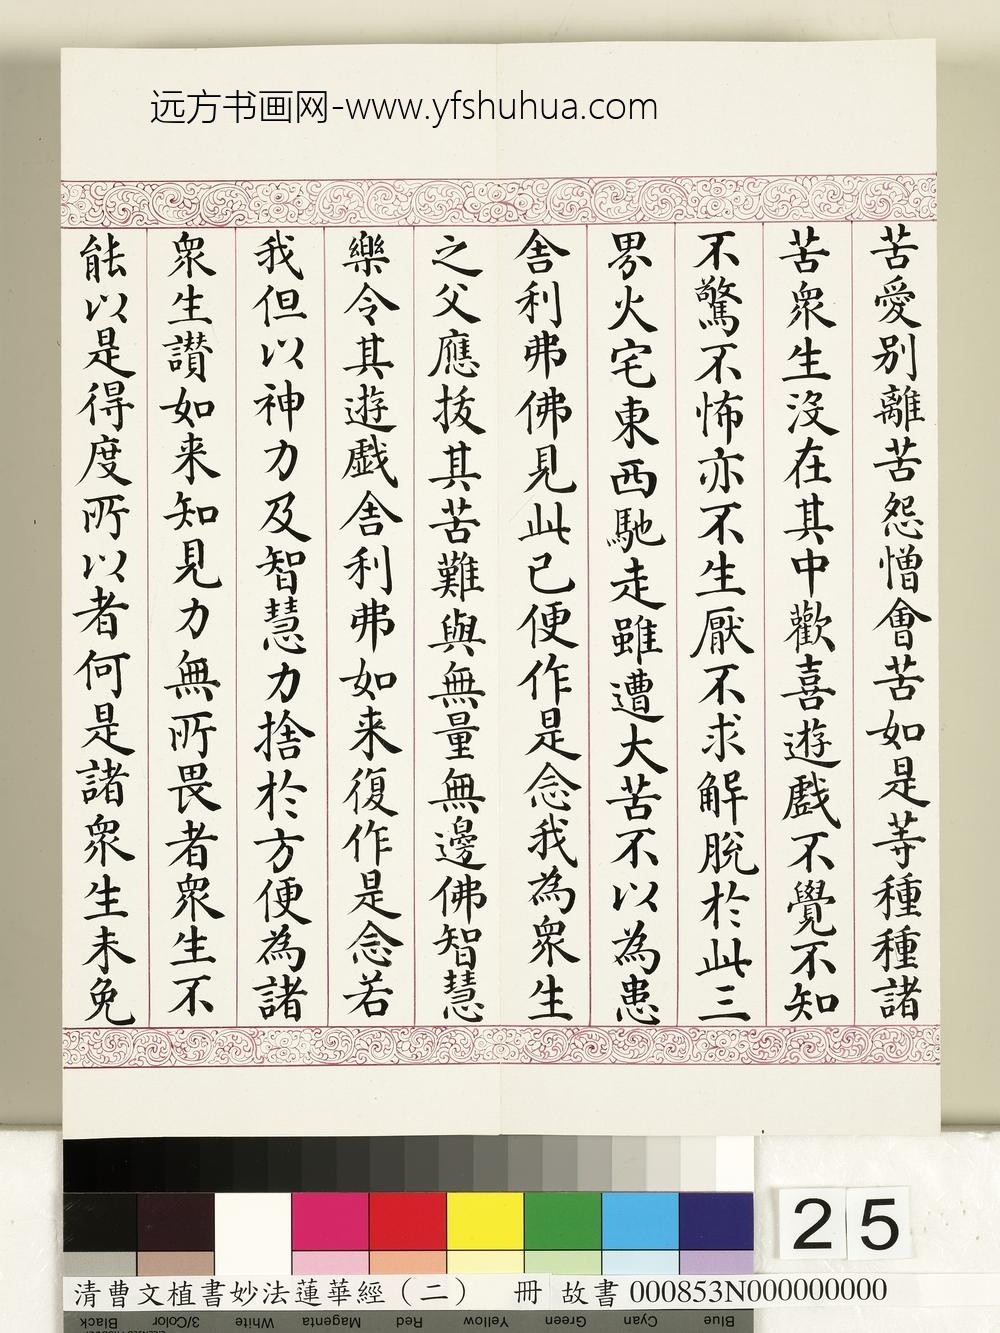 远方书画网-www.yfshuhua.com
苦愛别離苦怨憎會苦如是等種種諸
苦衆生沒在其中歡喜遊戲不覺不知
不驚不怖亦不生厭不求解脫於此三
界火宅東西馳走雖遭大苦不以為患
舍利弗佛見此已便作是念我為衆生
之父應拔其苦難與無量無邊佛智慧
樂令其遊戲舍利弗如来復作是念若
我但以神力及智慧力捨於方便為諸
衆生讃如来知見力無所畏者衆生不
能以是得度所以者何是諸衆生未免
25
清曹文植書妙法蓮華經（二） 冊 故書 000853N000000000
Black 3/Color White Magenta Red Yellow Green Cyan Blue